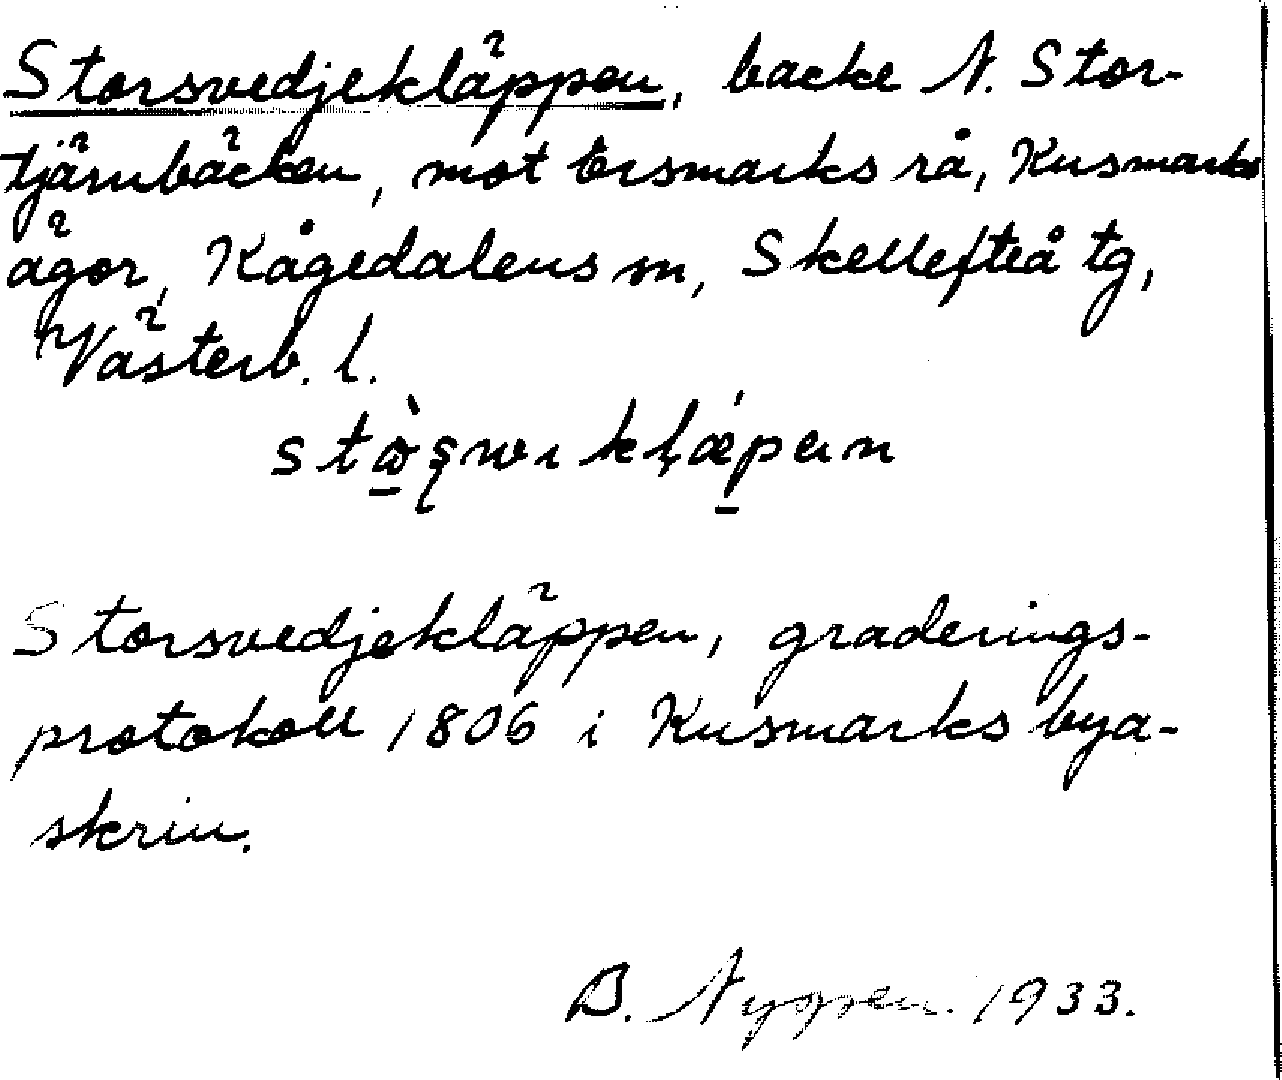 Storsvedjekläppen, backe N. Stor-
tjärnbäcken, mot Ersmarks rå, Kusmarks
ägor, Kågedalens sn, Skellefteå tg,
Västerb. l.
Storsvedjekläppen, graderings-
protokoll 1806 i Kusmarks bya-
skrin.
B. 1933.